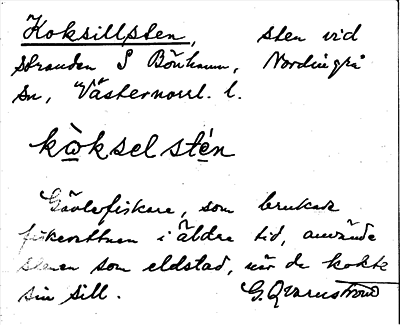 Koksillsten, sten vid
stranden S Bönhamn, Nordingrå
sn, Västernorrl. l.
kòksel stén
Gävlefiskare, som brukade
fiskerättnen i äldre tid, använde
stenen som eldstad, när de kokte
sin sill. G. Qvarnström